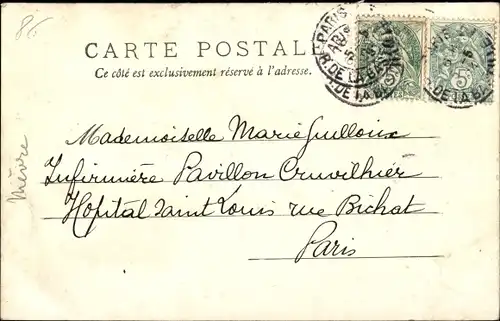 86
CARTE POSTALE
Ce côté est exclusivement réservé à l'adresse.
PARIS
R. DE LA B
5
Mademoiselle Marie Guilloux
Infirmière Pavillon Cruvilhier
Hôpital Saint Louis rue Bichat
Paris
Nièvre